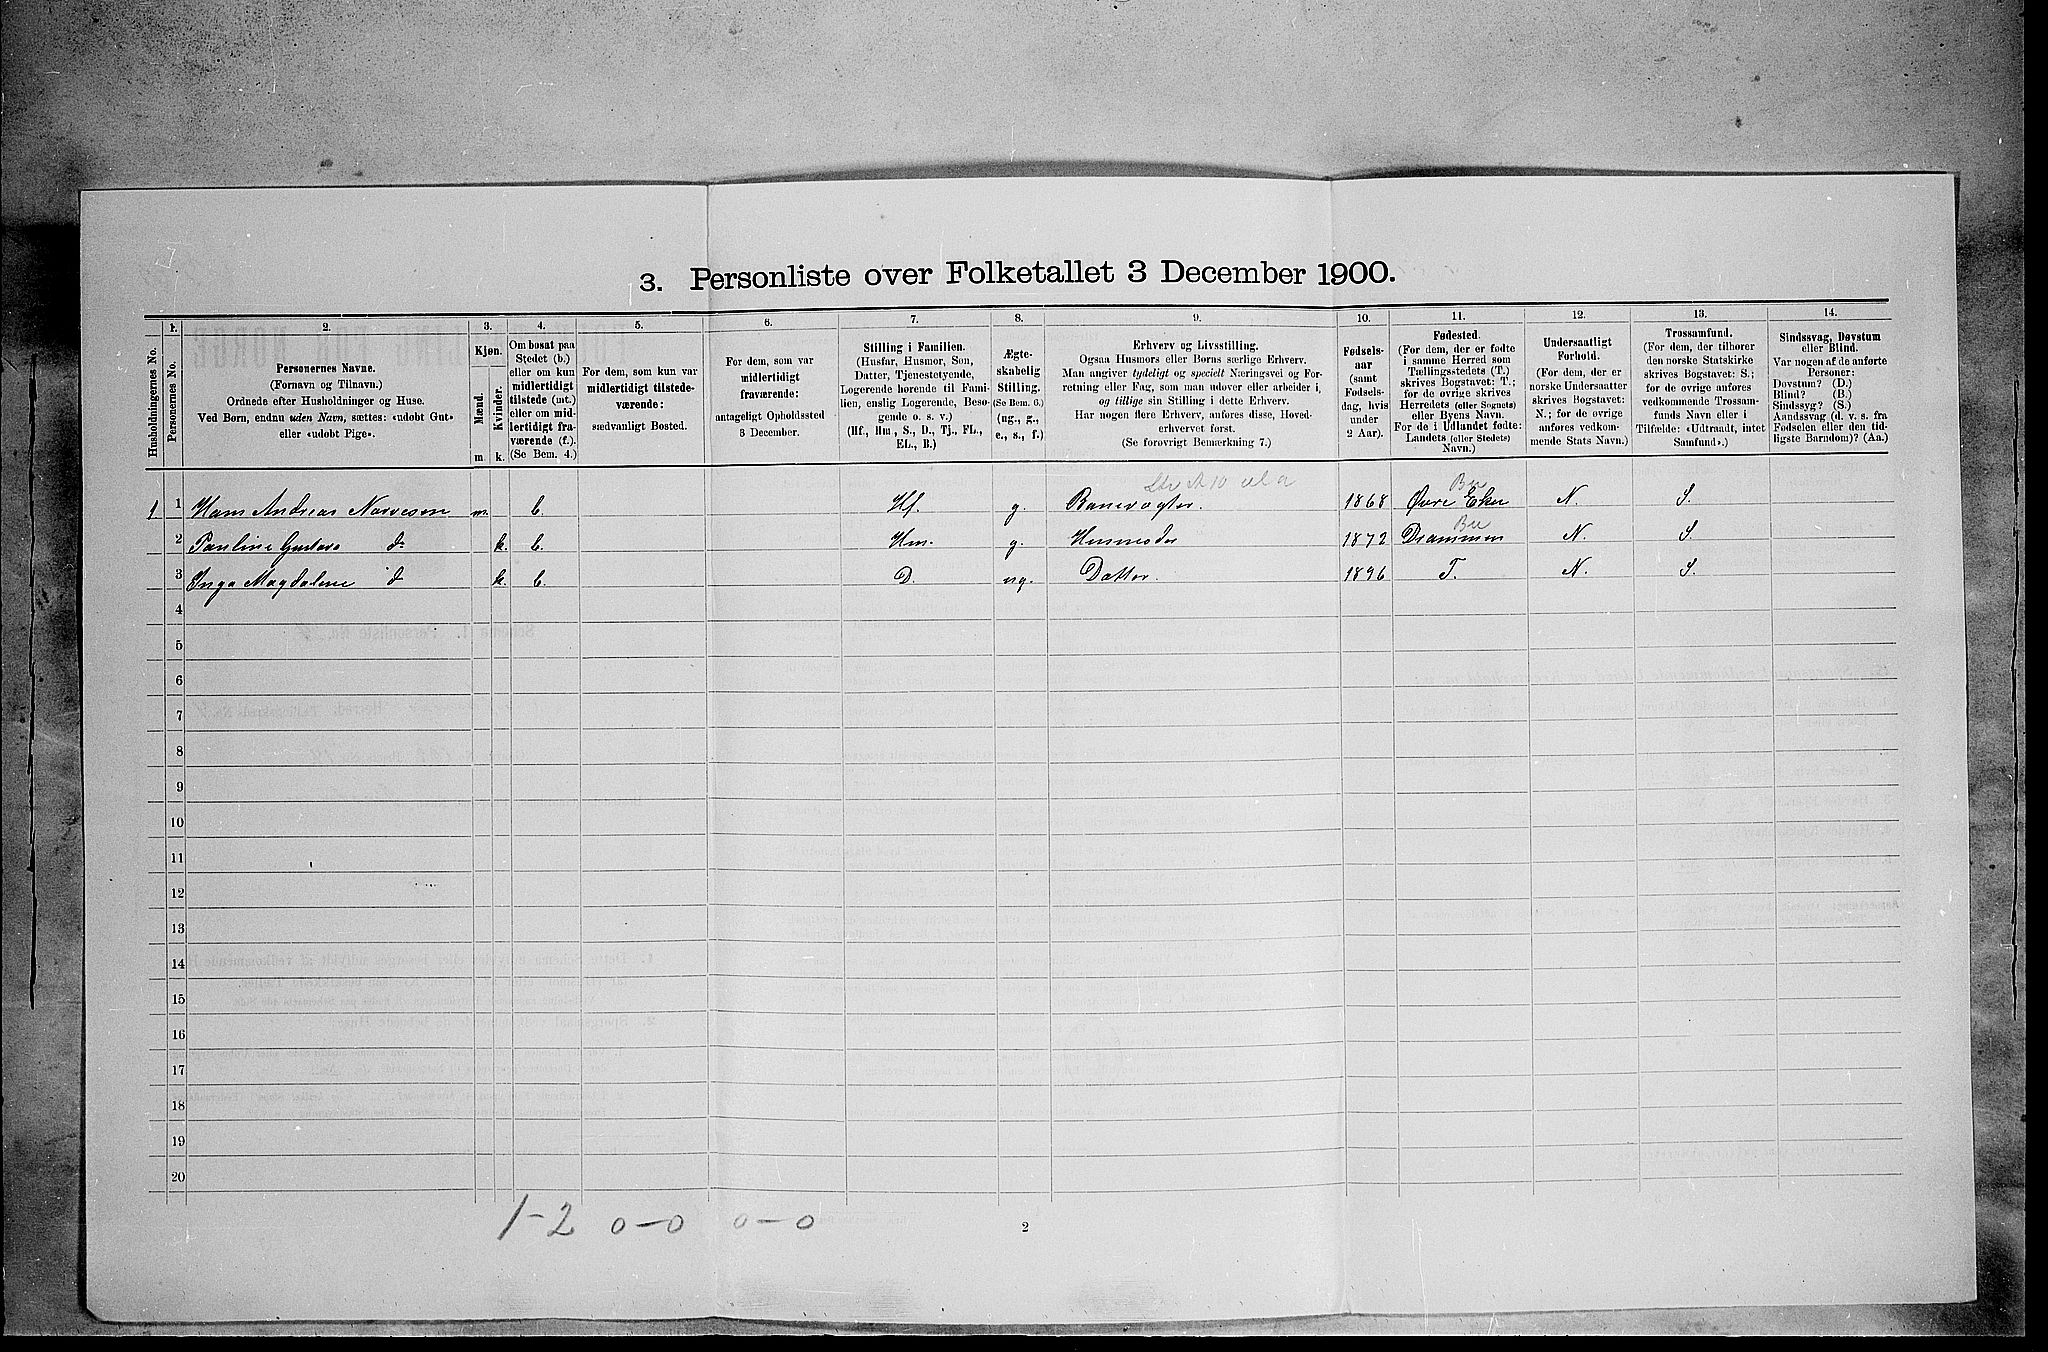 3. Personliste over Folketallet 3 December 1900.
1. 2. 3. 4. 5. 6. 7. 8. 9. 10. 11. 12. 13. 14.
Husholdningernes No.
Personernes No.
Personernes Navne.
(Fornavn og Tilnavn.)
Ordnede efter Husholdninger og Huse.
Ved Børn, endnu uden Navn, sættes: «udøbt Gut»
eller «udøbt Pige».
Kjøn.
Mænd.
Kvinder.
m. k.
Om bosat paa
Stedet (b.)
eller om kun
midlertidigt
tilstede (mt.)
eller om mid-
lertidigt fra-
værende (f.).
(Se Bem. 4.)
For dem, som kun var
midlertidigt tilstede-
værende:
sædvanligt Bosted.
For dem, som var
midlertidigt
fraværende:
antageligt Opholdssted
3 December.
Stilling i Familien.
(Husfar, Husmor, Søn,
Datter, Tjenestetyende,
Logerende hørende til Fami-
lien, enslig Logerende, Besø-
gende o. s. v.)
(Hf., Hm., S., D., Tj., FL.,
EL., B.)
Ægte-
skabelig
Stilling.
(Se Bem. 6.)
(ug., g.,
e., s., f.)
Erhverv og Livsstilling.
Ogsaa Husmors eller Børns særlige Erhverv.
Man angiver tydeligt og specielt Næringsvei og For-
retning eller Fag, som man udover eller arbeider i,
og tillige sin Stilling i dette Erhverv.
Har nogen flere Erhverv, anføres disse, Hoved-
erhvervet først.
(Se forøvrigt Bemerkning 7.)
Fødsels-
aar
(samt
Fødsels-
dag, hvis
under
2 Aar).
Fødested.
(For dem, der er fødte
i samme Herred som
Tællingsstedets (T.)
skrives Bogstavet: T.;
for de øvrige skrives
Herredets (eller Sognets)
eller Byens Navn.
For de i Udlandet fødte:
Landets (eller Stedets)
Navn.)
Undersaatligt
Forhold.
(For dem, der er
norske Undersaatter
skrives Bogstavet:
N.; for de øvrige
anføres vedkom-
mende Stats Navn.)
Trossamfund.
(For dem, der tilhører
den norske Statskirke
skrives Bogstavet: S.;
for de øvrige anføres
vedkommende Trossam-
funds Navn eller i
Tilfælde: «Udtraadt, intet
Samfund».)
Sindssvag, Døvstum
eller Blind.
Var nogen af de anførte
Personer:
Døvstum? (D.)
Blind? (B.)
Sindssyg? (S.)
Aandssvag (d. v. s. fra
Fødselen eller den tid-
ligste Barndom)? (Aa.)
1 1 Hans Andreas Narvesen m. b. Hf. g. Banevogter. 1868 Øvre Eker N. S.
2 Pauline Gustava do k. b. Hm. g. Husmoder 1872 Drammen N. S.
3 Inga Magdalene do k. b. D. ug. Datter. 1896 T. N. S.
4
5
6
7
8
9
10
11
12
13
14
15
16
17
18
19
20
1-2 0-0 0-0
2